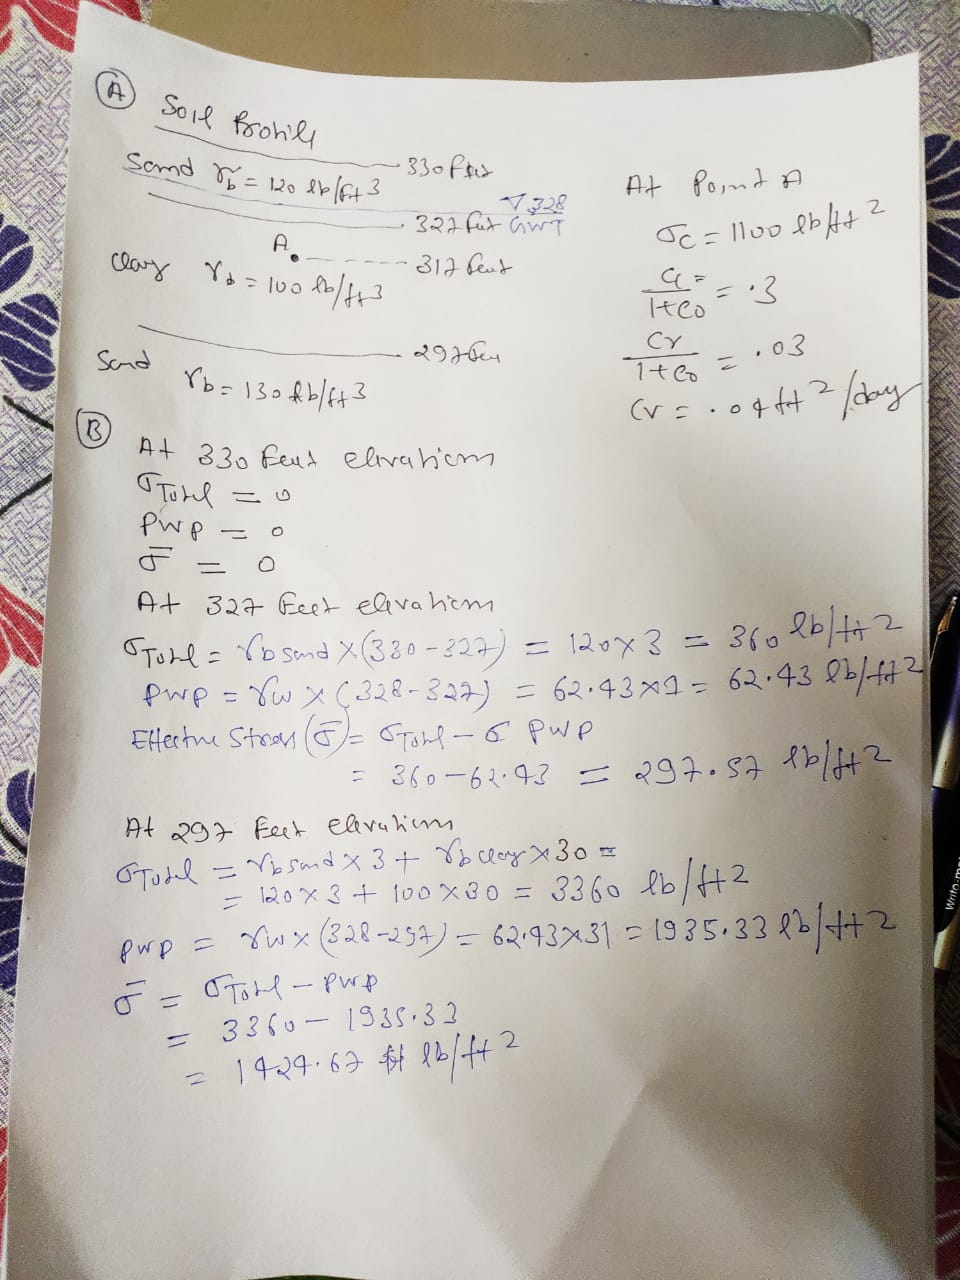 A Soil Profile
330 feet
Sand γb = 120 lb/ft3
▽ 328
327 feet GWT
A.
317 feet
Clay γb = 100 lb/ft3
297 feet
Sand γb = 130 lb/ft3
At Point A
σc = 1100 lb/ft2
Cc/1+eo = .3
Cr/1+eo = .03
Cv = .04 ft2/day
B At 330 feet elevation
σTotal = 0
PWP = 0
σ̄ = 0
At 327 Feet elevation
σTotal = γb sand X (330-327) = 120X3 = 360 lb/ft2
PWP = γw X (328-327) = 62.43X1 = 62.43 lb/ft2
Effective Stress (σ̄) = σTotal - σ PWP
= 360-62.43 = 297.57 lb/ft2
At 297 Feet elevation
σTotal = γb sand X 3 + γb clay X 30 =
= 120X3 + 100X30 = 3360 lb/ft2
PWP = γw X (328-297) = 62.43X31 = 1935.33 lb/ft2
σ̄ = σTotal - PWP
= 3360 - 1935.33
= 1424.67 lb/ft2